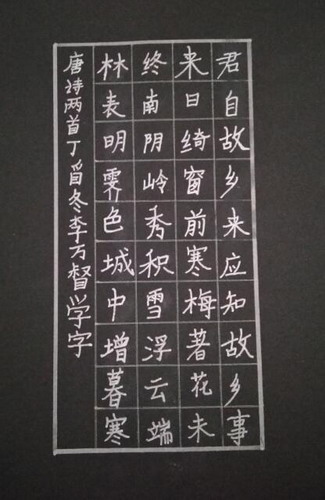 君自故乡来应知故乡事
来日绮窗前寒梅著花未
终南阴岭秀积雪浮云端
林表明霁色城中增暮寒
唐诗两首丁酉冬李万督学字